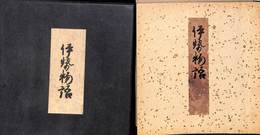 伊勢物語
伊勢物語